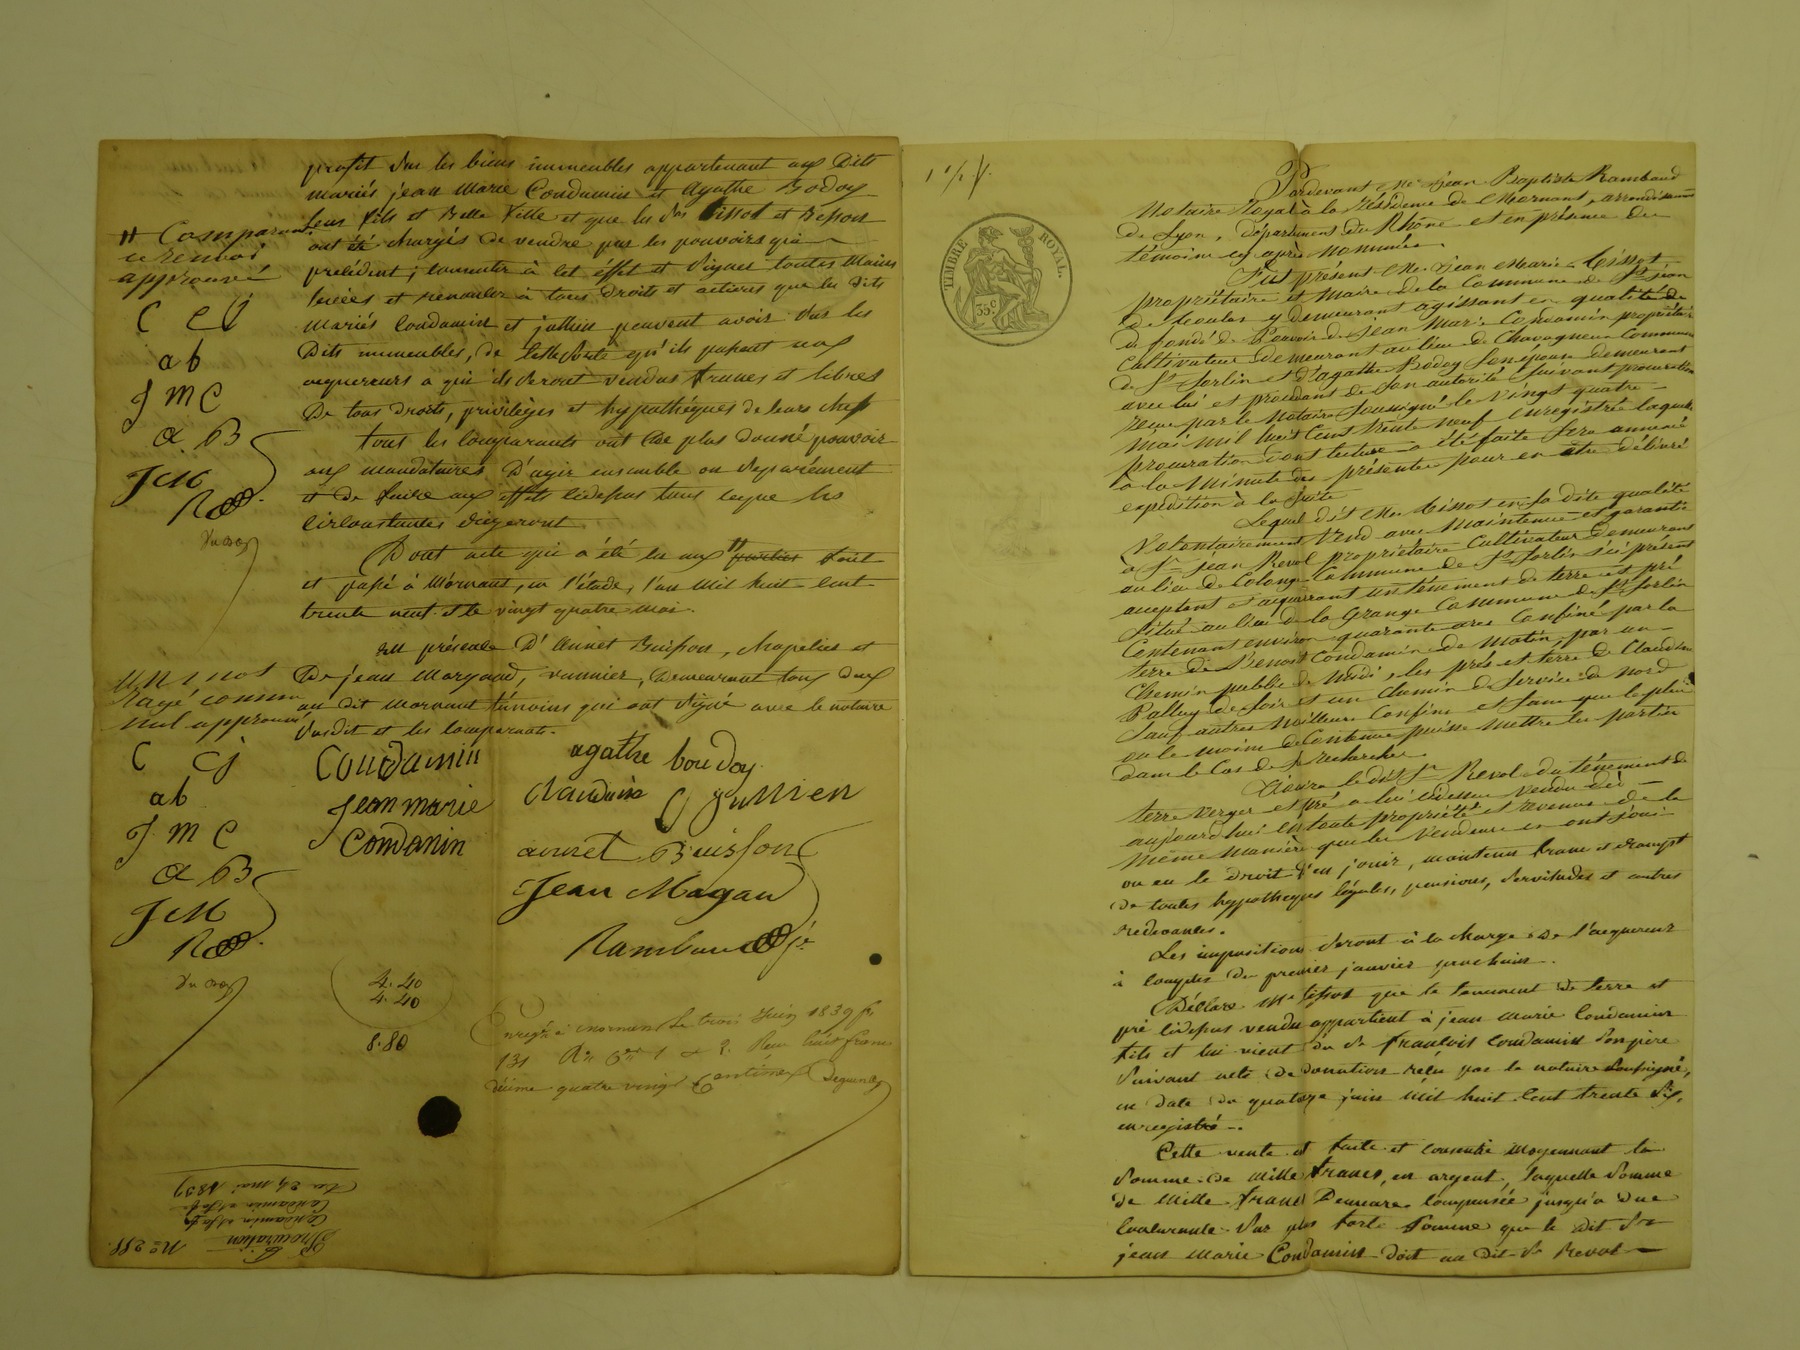 profit sur les biens immeubles appartenant aux dits
mariés jean Marie Condamin et Agathe Bodoy
leur fils et Belle fille et que les Srs Tissot et Besson
ont été chargés de vendre par les pouvoirs qui
précédent; consentir à cet éffet et signer toutes mains
levées et renoncer à tous droits et actions que les dits
mariés Condamin et jullien peuvent avoir sur les
dits immeubles, de telle sorte qu'ils passent aux
acquereurs a qui ils seront vendus francs et libres
De tous droits, privilèges et hypothéques de leurs chefs
tous les comparants ont de plus donné pouvoir
aux mandataires D'agir ensemble ou séparément
et de faire aux effets cidessus tous ceque les
circonstances éxigeront
Dont acte qui a été lu aux " parties fait
et passé à Mornant, en l'étude, l'an mil huit cent
trente neuf et le vingt quatre mai.
en présence D'Annet Buisson, chapelier et
De jean Margaud, vannier, Demeurant tous deux
au dit Mornant témoins qui ont signé avec le notaire
susdit et les comparants.
" Comparants
ce renvoi
approuvé
C CJ
ab
J M C
a B
JM
R
un mot
Rayé comme
nul approuvé
C CJ
ab
J M C
a B
JM
R
Condamin
agathe boudoy
Jean marie
Condamin
claudine jullien
annet Buisson
Jean Magau
Rambaud
4.40
4.40
8.80
Enregé à mornant le trois Juin 1839 fo
131 Ro Ces 1 & 2. Reçu huit francs
décime quatre vingt Centimes
No 288.
Procuration
Condamin et sa fe
Condamin et sa fe
Du 24 mai 1839
TIMBRE ROYAL.
35c
Pardevant Me Jean Baptiste Rambaud
Notaire Royal à la Résidence de Mornant, arrondissement
de Lyon, département du Rhône et en présence des
témoins cy après nommés.
Fut présent Mr Jean Marie Tissot
propriétaire et Maire de la Commune de St jean
de Toulas y demeurant agissant en qualité de
de fondé de Pouvoir de Jean Marie Condamin propriétaire
Cultivateur demeurant au lieu de Chavagneu Commune
de St Sorlin et d'agathe Bodoy son épouse demeurant
avec lui et procédant de Son autorité Suivant procuration
reçue par le Notaire Soussigné le Vingt quatre
mai mil huit Cent trente neuf enregistrée laquelle
procuration dont lecture a été faite sera annexée
à la Minute des présentes pour en être délivré
expédition à la Suite
Lequel dit Mr Tissot en sa dite qualité
Volontairement Vend avec Maintenue et garantie
à Sr jean Revol propriétaire Cultivateur demeurant
au lieu de Colonge Commune de St Sorlin ici présent
acceptant et acquérant un ténement de terre et pré
Situé au lieu de la Grange Commune de St Sorlin
Contenant environ quarante ares Confiné par la
terre de Benoit Condamin de Matin, par un
Chemin public de Midi, les prés et terre de Claudine
Palluy de soir et un Chemin de Service de nord
Sauf autres Meilleurs Confins et sans que le plus
ou le moins de Contenue puisse mettre les parties
dans le Cas de se rechercher.
Jouira ledit Sr Revol du ténement de
terre verger et pré a lui cidessus Vendu dès
aujourd'hui en toute propriété et revenus de la
Même Manière que les Vendeurs en ont joui
ou eu le droit d'en jouir, maintenu franc et exempt
de toutes hypotheques légales, pensions, servitudes et autres
redevances.
Les imposition seront à la charge de l'acquereur
à compter du premier janvier prochain.
Déclare Mr Tissot que le tenement de terre et
pré cidessus vendu appartient à jean Marie Condamin
fils et lui vient du Sr francois Condamin son père
Suivant acte de donation reçu par le notaire soussigné,
en date du quatorze juin mil huit cent trente six,
enregistré.
Cette vente est faite et consentie moyennant la
Somme de Mille francs, en argent, laquelle Somme
de Mille francs Demeure compensée jusqu'a due
concurrente sur plus forte Somme que le dit Sr
jean Marie Condamin doit au dit Sr Revol